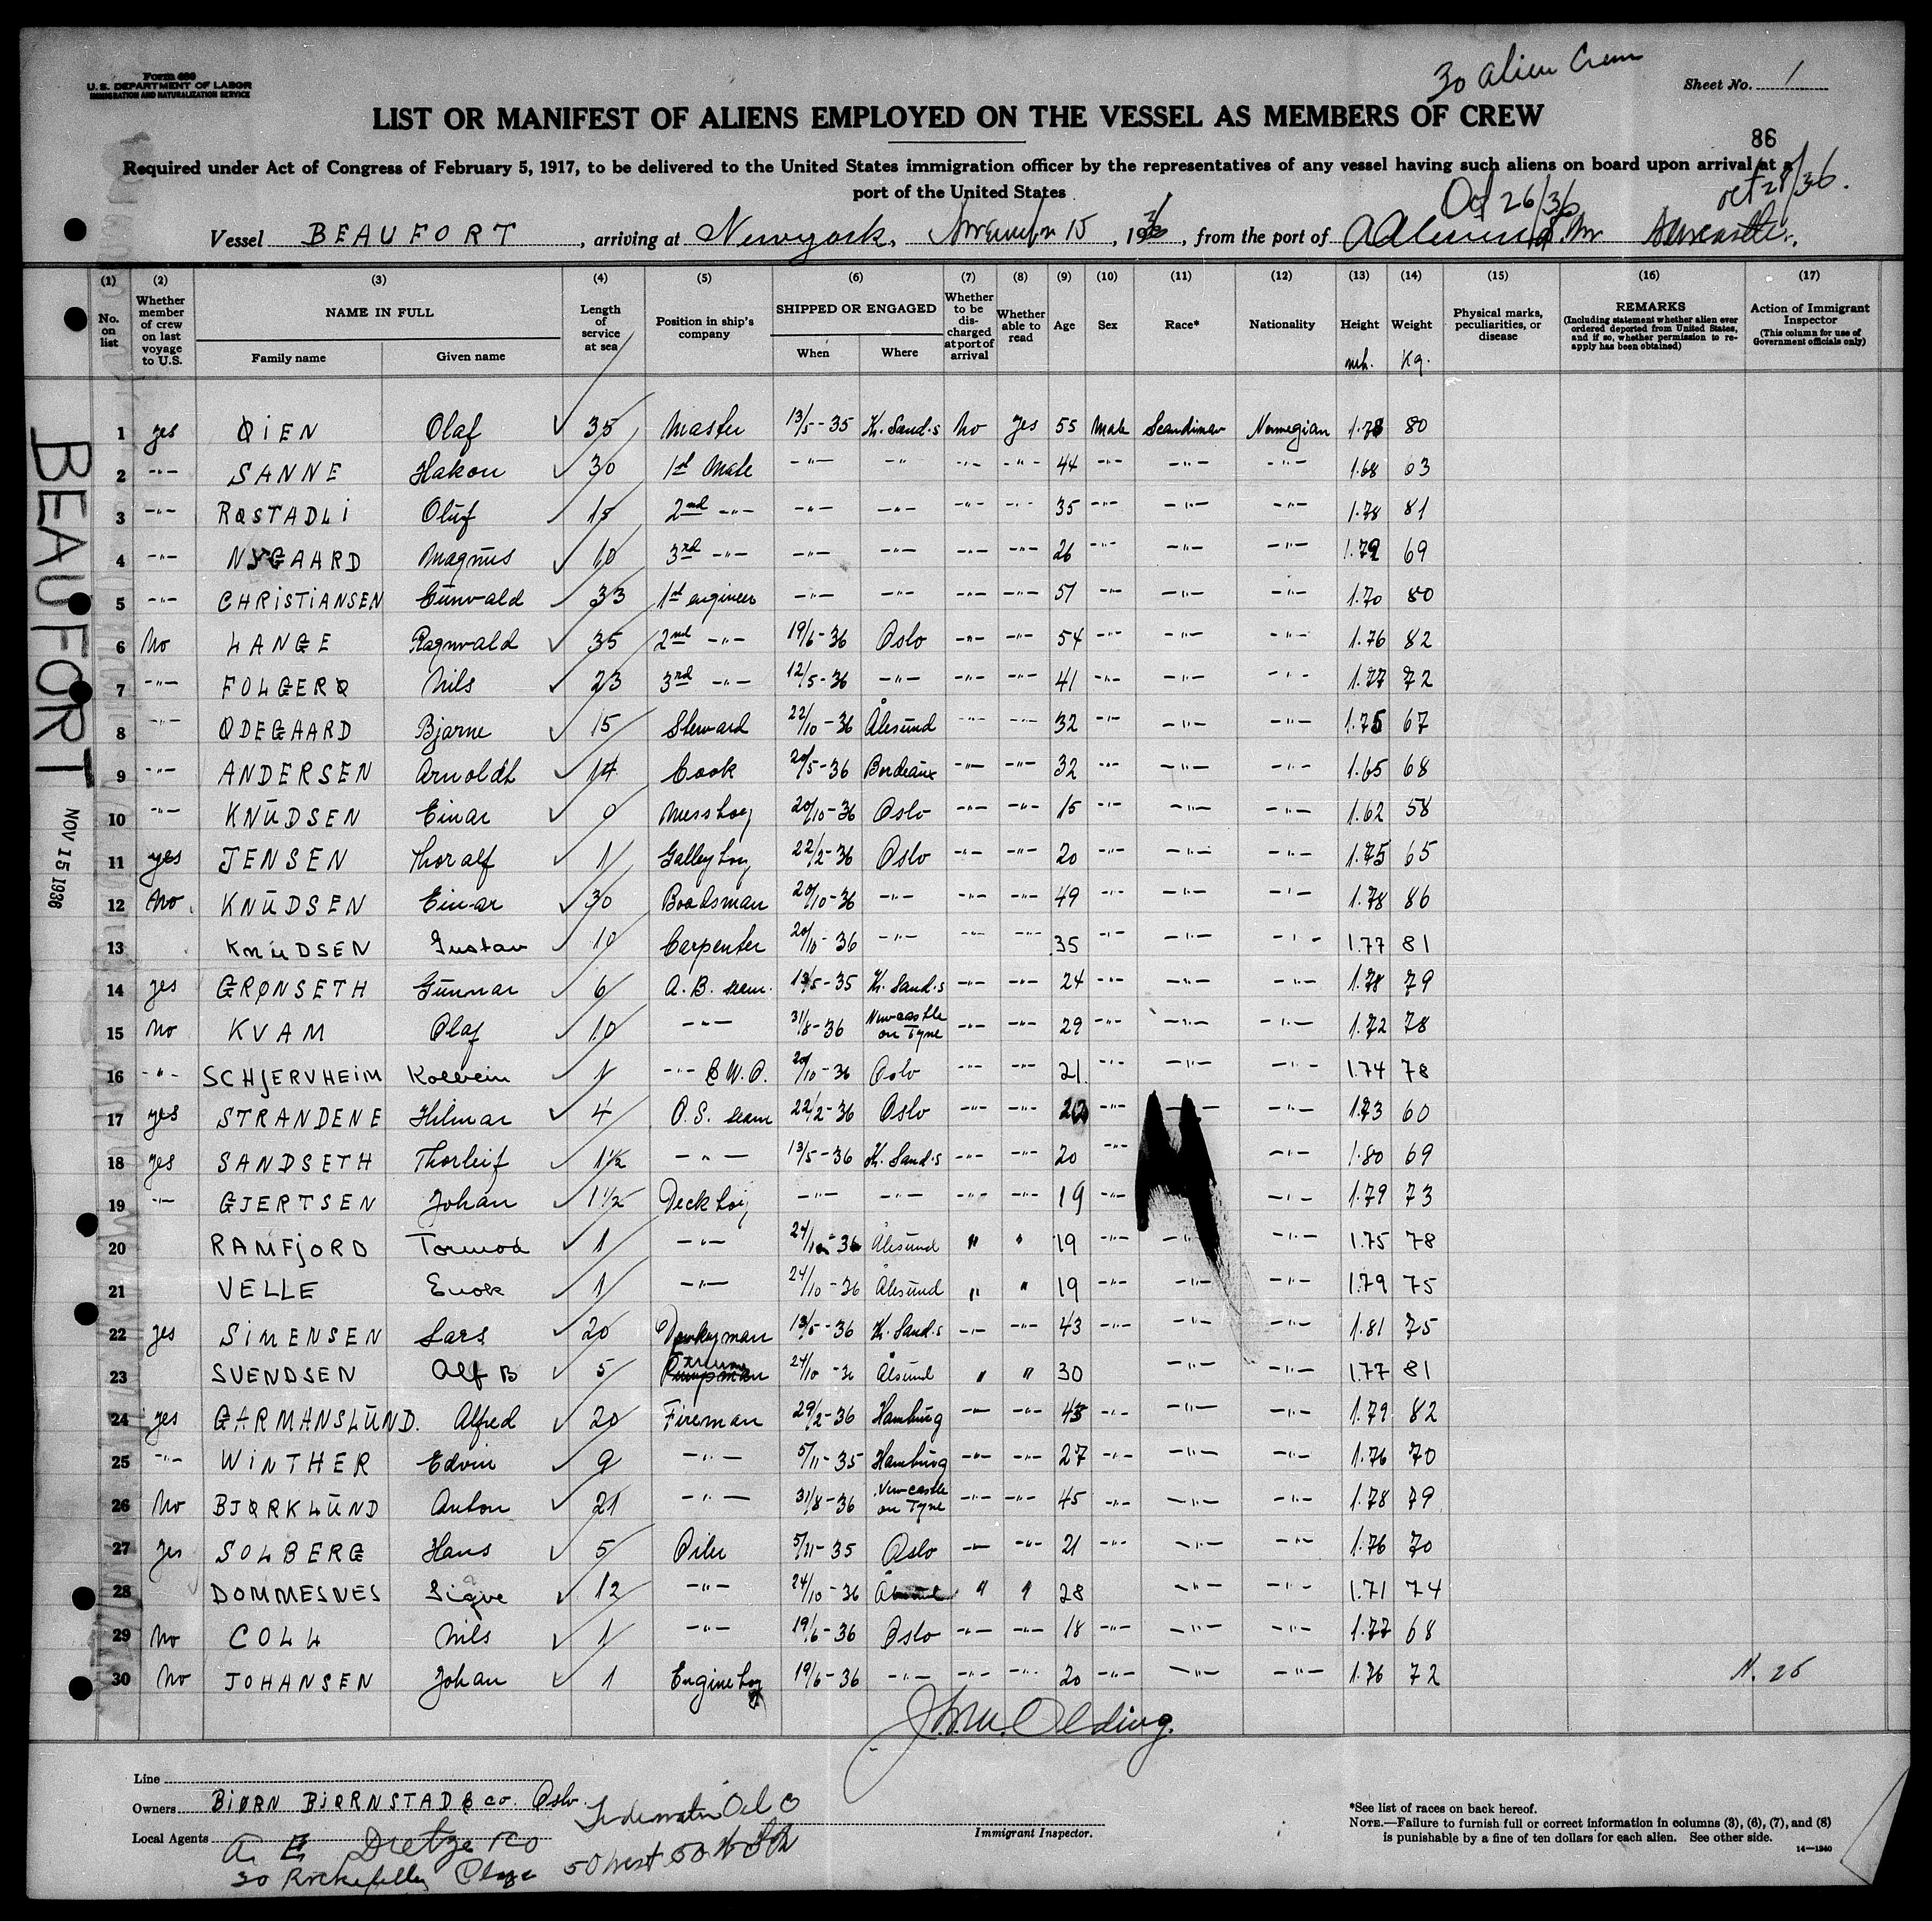 Form 680
U. S. DEPARTMENT OF LABOR
IMMIGRATION AND NATURALIZATION SERVICE
30 alien Crew
Sheet No. 1
LIST OR MANIFEST OF ALIENS EMPLOYED ON THE VESSEL AS MEMBERS OF CREW
86
Required under Act of Congress of February 5, 1917, to be delivered to the United States immigration officer by the representatives of any vessel having such aliens on board upon arrival at a
port of the United States
Oct 26/36 oct 28/36.
Vessel BEAUFORT, arriving at Newyork, November 15, 1936, from the port of
(1) (2) (3) (4) (5) (6) (7) (8) (9) (10) (11) (12) (13) (14) (15) (16) (17)
No. on list
Whether member of crew on last voyage to U.S.
NAME IN FULL
Family name Given name
Length of service at sea
Position in ship's company
SHIPPED OR ENGAGED
When Where
Whether to be discharged at port of arrival
Whether able to read
Age
Sex
Race*
Nationality
Height
Weight Kg.
Physical marks, peculiarities, or disease
REMARKS
(Including statement whether alien ever ordered deported from United States, and if so, whether permission to reapply has been obtained)
Action of Immigrant Inspector
(This column for use of Government officials only)
1 yes ØIEN Olaf ✓ 35 Master 13/5-35 Kr. Sand.s No yes 55 Male Scandinav Norwegian 1.78 80
2 -"- SANNE Hakon ✓ 30 1st Mate -"- -"- -"- -"- 44 -"- -"- -"- 1.68 63
3 -"- RØSTADLI Oluf ✓ 15 2nd -"- -"- -"- -"- -"- 35 -"- -"- -"- 1.78 81
4 -"- NYGAARD Magnus ✓ 10 3rd -"- -"- -"- -"- -"- 26 -"- -"- -"- 1.79 69
5 -"- CHRISTIANSEN Gunvald ✓ 33 1st engineer -"- -"- -"- -"- 57 -"- -"- -"- 1.70 80
6 No LANGE Ragnvald ✓ 35 2nd -"- 19/6-36 Oslo -"- -"- 54 -"- -"- -"- 1.76 82
7 -"- FOLGERØ Nils ✓ 23 3rd -"- 12/5-36 -"- -"- -"- 41 -"- -"- -"- 1.77 72
8 -"- ØDEGAARD Bjarne ✓ 15 Steward 22/10-36 Ålesund -"- -"- 32 -"- -"- -"- 1.75 67
9 -"- ANDERSEN Arnoldt ✓ 14 Cook 20/5-36 Bordeaux -"- -"- 32 -"- -"- -"- 1.65 68
10 -"- KNUDSEN Einar ✓ 0 Messboy 20/10-36 Oslo -"- -"- 15 -"- -"- -"- 1.62 58
11 yes JENSEN Thoralf ✓ 1 Galleyboy 22/2-36 Oslo -"- -"- 20 -"- -"- -"- 1.75 65
12 No KNUDSEN Einar ✓ 30 Boadsman 20/10-36 -"- -"- -"- 49 -"- -"- -"- 1.78 86
13 KNUDSEN Gustav ✓ 10 Carpenter 20/10-36 -"- -"- -"- 35 -"- -"- -"- 1.77 81
14 yes GRØNSETH Gunnar ✓ 6 A.B. seam. 13/5-35 Kr. Sand.s -"- -"- 24 -"- -"- -"- 1.78 79
15 No KVAM Olaf ✓ 10 -"- 31/8-36 Newcastle on Tyne -"- -"- 29 -"- -"- -"- 1.72 78
16 -"- SCHJERVHEIM Kolbein ✓ 1 -"- 20/10-36 Oslo -"- -"- 21 -"- -"- -"- 1.74 78
17 yes STRANDENE Hilmar ✓ 4 O.S. seam 22/2-36 Oslo -"- -"- -"- -"- -"- 1.73 60
18 yes SANDSETH Thorleif ✓ 1½ -"- 13/5-36 Kr. Sand.s -"- -"- 20 -"- -"- 1.80 69
19 -"- GJERTSEN Johan ✓ 1½ Deckboy -"- -"- -"- -"- 19 -"- -"- 1.79 73
20 RAMFJORD Tormod ✓ 1 -"- 24/10-36 Ålesund " " 19 -"- -"- -"- 1.75 78
21 VELLE Enok ✓ 1 -"- 24/10-36 Ålesund " " 19 -"- -"- -"- 1.79 75
22 yes SIMENSEN Lars ✓ 20 Donkeyman 13/5-36 Kr. Sand.s -"- -"- 43 -"- -"- -"- 1.81 75
23 SVENDSEN Alf B ✓ 5 24/10-36 Ålsund " " 30 -"- -"- 1.77 81
24 yes GARMANSLUND. Alfred ✓ 20 Fireman 29/2-36 Hamburg -"- -"- 45 -"- -"- -"- 1.79 82
25 -"- WINTHER Edvin ✓ 9 -"- 5/11-35 Hamburg -"- -"- 27 -"- -"- -"- 1.76 70
26 No BJØRKLUND Anton ✓ 21 -"- 31/8-36 Newcastle on Tyne -"- -"- 45 -"- -"- -"- 1.78 79
27 Yes SOLBERG Hans ✓ 5 Oiler 5/11-35 Oslo -"- -"- 21 -"- -"- -"- 1.76 70
28 DOMMESNES Sigve ✓ 12 -"- 24/10-36 " " 28 -"- -"- 1.71 74
29 No COLL Nils ✓ 1 -"- 19/6-36 Oslo -"- -"- 18 -"- -"- -"- 1.77 68
30 No JOHANSEN Johan ✓ 1 Engineboy 19/6-36 -"- -"- -"- 20 -"- -"- -"- 1.76 72
BEAUFORT
NOV 15 1936
Line
Owners BIØRN BIØRNSTAD & co. Oslo.
Local Agents A E Dietze & Co
30 Rockefeller Plaza
Tidewater Oil
Immigrant Inspector.
*See list of races on back hereof.
NOTE.—Failure to furnish full or correct information in columns (3), (6), (7), and (8)
is punishable by a fine of ten dollars for each alien. See other side.
14—1940